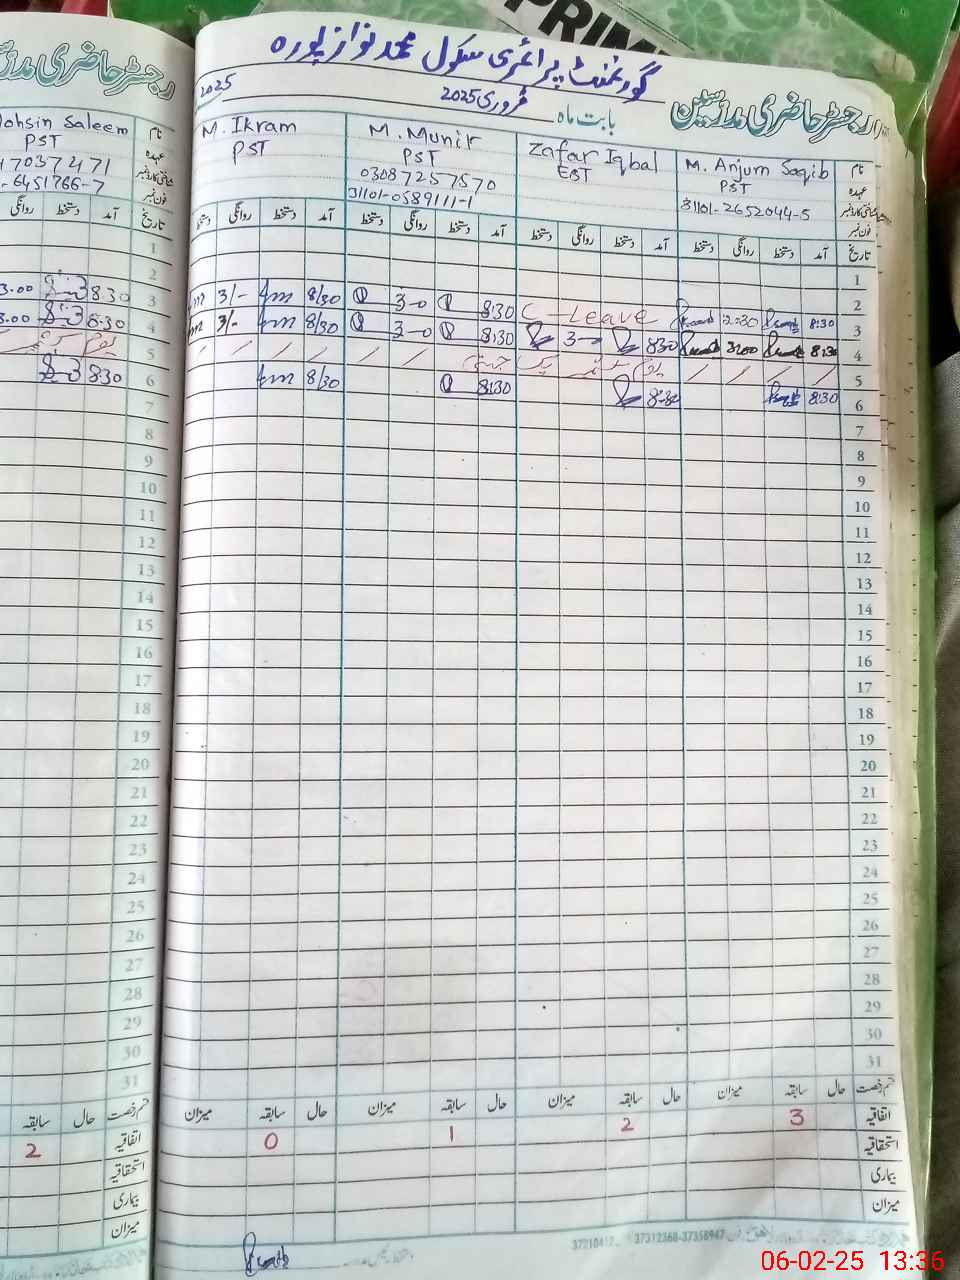 PRIM
گورنمنٹ پرائمری سکول محمد نواز پورہ
رجسٹر حاضری مدرسین
بابت ماہ فروری 2025
2025
نام M. Anjum Saqib Zafar Iqbal M. Munir M. Ikram
عہدہ PST EST PST PST
31101-2652044-5 03087257570
31101-0589111-1
فون نمبر
تاریخ آمد دستخط روانگی دستخط آمد دستخط روانگی دستخط آمد دستخط روانگی دستخط آمد دستخط روانگی دستخط
1
2
3 8:30 2:30 C - Leave 8:30 3-0 8/30 3/-
4 8:30 3:00 830 3- 8:30 3-0 8/30 3/-
5
6 8:30 8:30 8:30 8/30
7
8
9
10
11
12
13
14
15
16
17
18
19
20
21
22
23
24
25
26
27
28
29
30
31
قسم رخصت حال سابقہ میزان حال سابقہ میزان حال سابقہ میزان حال سابقہ میزان
اتفاقیہ 3 2 1 0
استحقاقیہ
بیماری
میزان
37312368-37358947
رجسٹر حاضری
نام ohsin Saleem
عہدہ PST
17037471
فون نمبر -6451766-7
تاریخ آمد دستخط روانگی
1
2
3 8:30 3.00
4 8:30 3.00
5
6 8:30
7
8
9
10
11
12
13
14
15
16
17
18
19
20
21
22
23
24
25
26
27
28
29
30
31
قسم رخصت حال سابقہ
اتفاقیہ 2
استحقاقیہ
بیماری
میزان
06-02-25 13:36